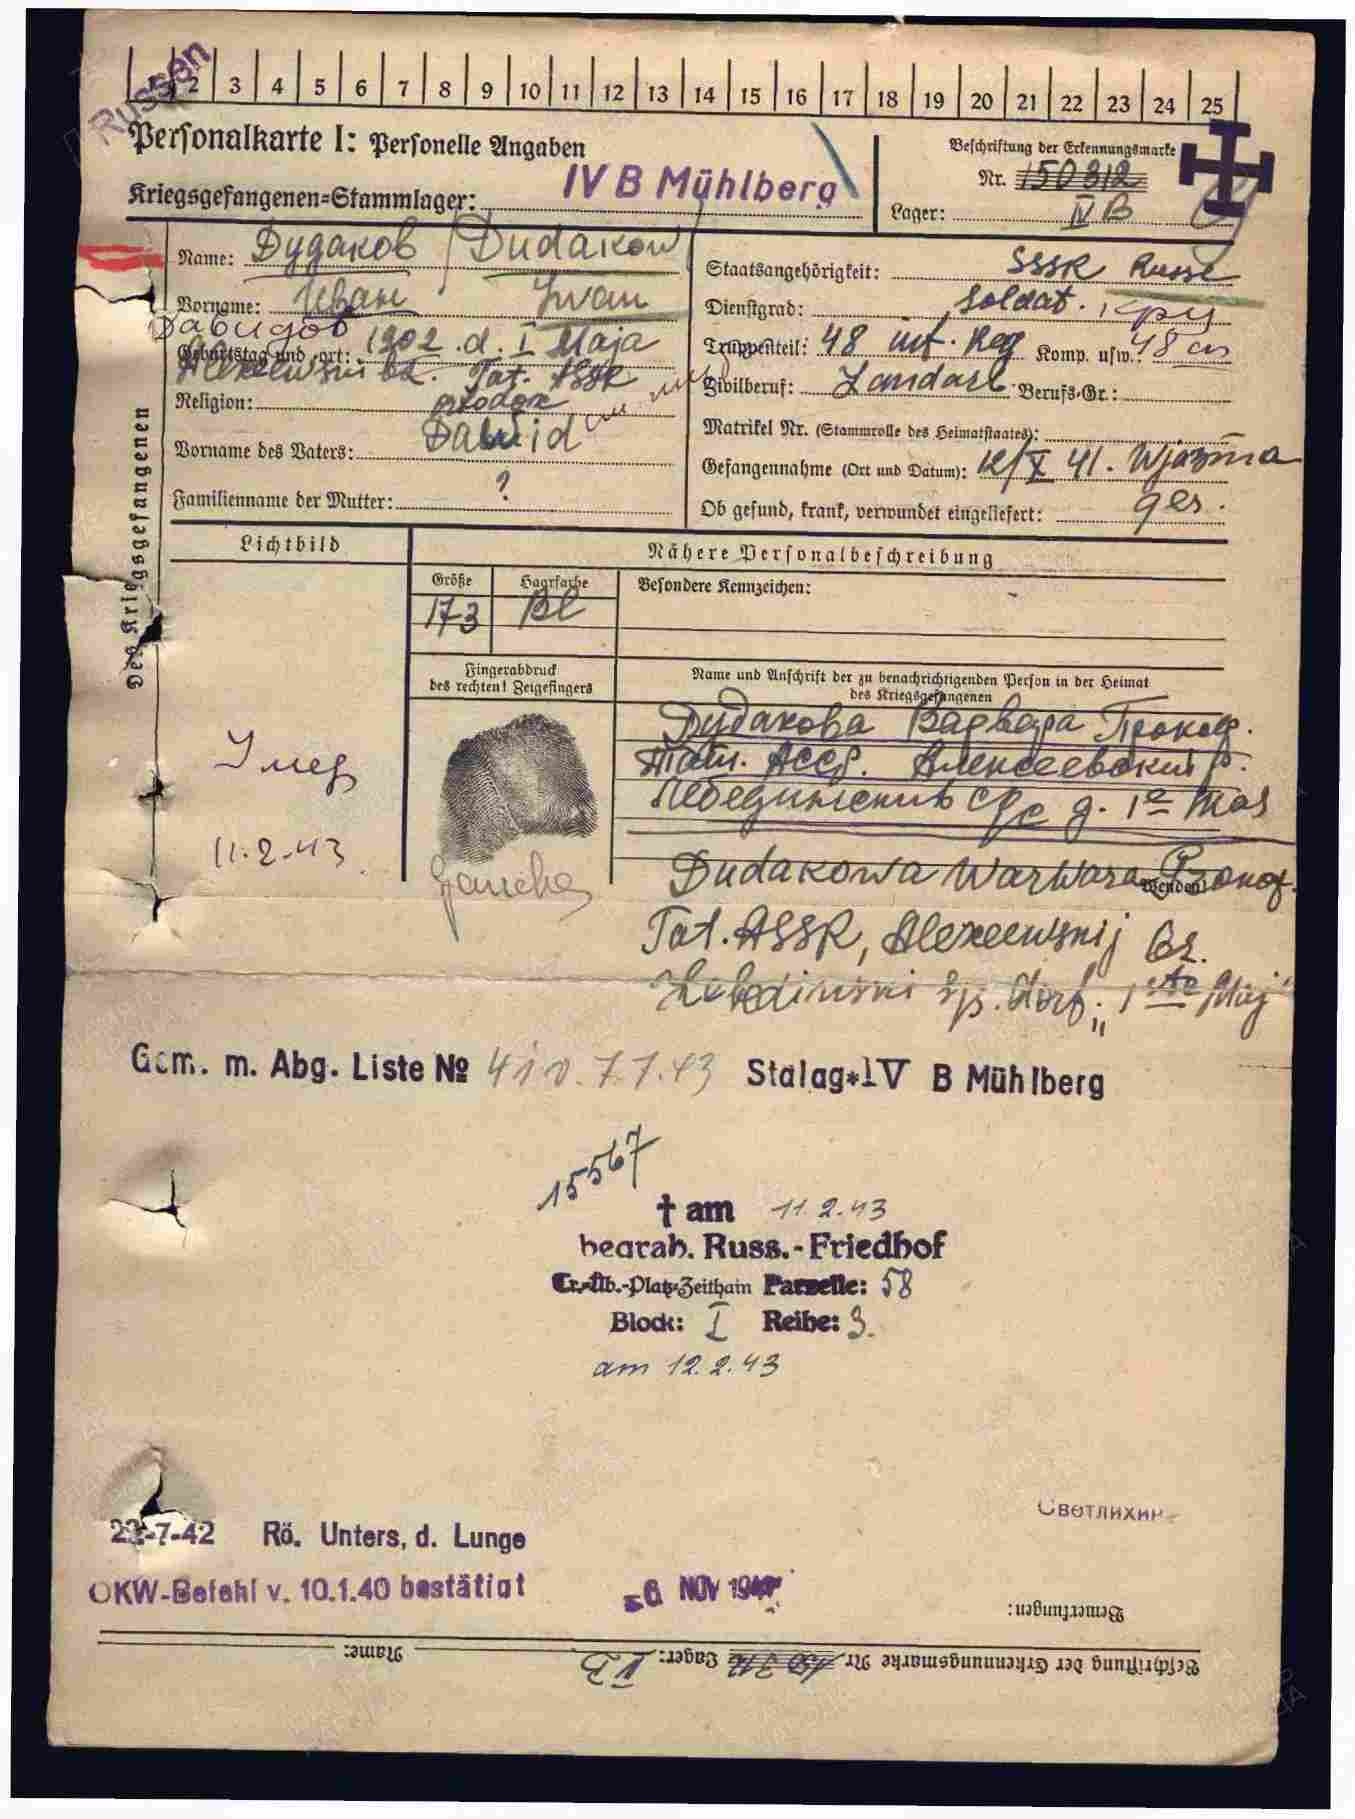 Russen
2 3 4 5 6 7 8 9 10 11 12 13 14 15 16 17 18 19 20 21 22 23 24 25
Personalkarte I: Personelle Angaben
Kriegsgefangenen-Stammlager: IV B Mühlberg
Beschriftung der Erkennungsmarke
Nr. 150312
Lager: IV B
Des Kriegsgefangenen
Name: Дудаков / Dudakow
Vorname: Иван Iwan
Давидов
Geburtstag und -ort: 1902. d. I Maja
Alexeewski bz. Tat. ASSR
Religion: ortodox
Vorname des Vaters: Dawid
Familienname der Mutter: ?
Staatsangehörigkeit: SSSR Russe
Dienstgrad: Soldat.
Truppenteil: 48 inf. Reg Komp. usw.: 48
Zivilberuf: Landarb Berufs-Gr.:
Matrikel Nr. (Stammrolle des Heimatstaates):
Gefangennahme (Ort und Datum): 12/X 41. Wjazma
Ob gesund, krank, verwundet eingeliefert: ges.
Lichtbild
Nähere Personalbeschreibung
Größe Haarfarbe Besondere Kennzeichen:
173 Bl
Fingerabdruck
des rechten! Zeigefingers
Name und Anschrift der zu benachrichtigenden Person in der Heimat
des Kriegsgefangenen
Дудакова Варвара Прокоф.
Тат. АССР. Алексеевский р.
Лебединский с/с д. 1е Мая
Умер
11.2.43
Dudakowa Warwara Prokof.
Wenden!
Tat. ASSR, Alexeewskij bz.
Lebedinski
Gem. m. Abg. Liste № 410. 7.1.43 Stalag IV B Mühlberg
15567
† am 11.2.43
begrab. Russ.-Friedhof
Tr.-Üb.-Platz Zeithain Parzelle: 58
Block: I Reihe: 3.
am 12.2.43
Светлихин
7-42 Rö. Unters, d. Lunge
OKW-Befehl v. 10.1.40 bestätigt
-6 NOV
Bemerkungen:
Beschriftung der Erkennungsmarke Nr 150312 Lager: IV B Name: